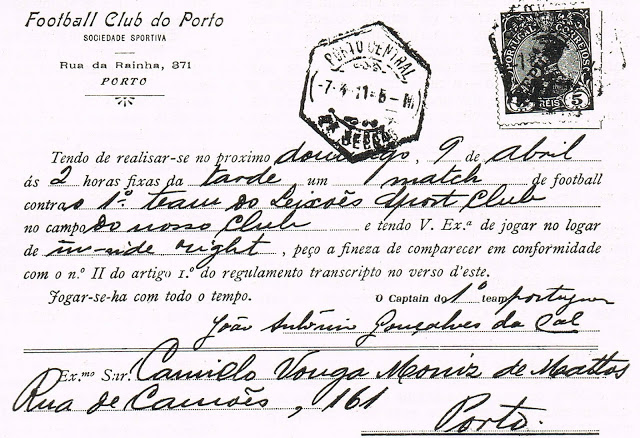 Football Club do Porto
SOCIEDADE SPORTIVA
Rua da Rainha, 371
PORTO
PORTO CENTRAL
-7-4-11-5-M
PORTUGAL CORREIOS
5 REIS
Tendo de realisar-se no proximo domingo, 9 de Abril
ás 2 horas fixas da tarde um match de football
contra o 1º team do Leixões Sport Club
no campo do nosso Club e tendo V. Ex.ª de jogar no logar
de in-side right, peço a fineza de comparecer em conformidade
com o n.º II do artigo 1.º do regulamento transcripto no verso d'este.
Jogar-se-ha com todo o tempo. O Captain do 1º team portuguez
João António Gonçalves da Cal
Ex.mo Snr. Camilo Vouga Moniz de Mattos
Rua de Camões, 161
Porto.